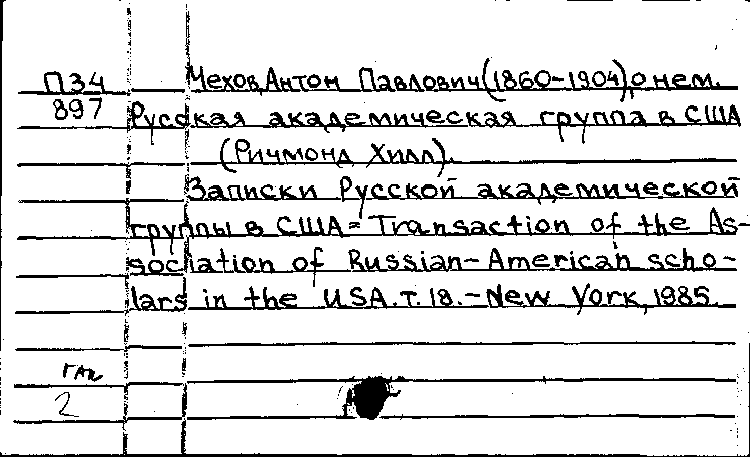 П34 Чехов, Антон Павлович (1860-1904), о нем.
897 Русская академическая группа в США
(Ричмонд Хилл).
Записки Русской академической
группы в США = Transaction of the As-
sociation of Russian-American scho-
lars in the USA. Т. 18. - New York, 1985.
2